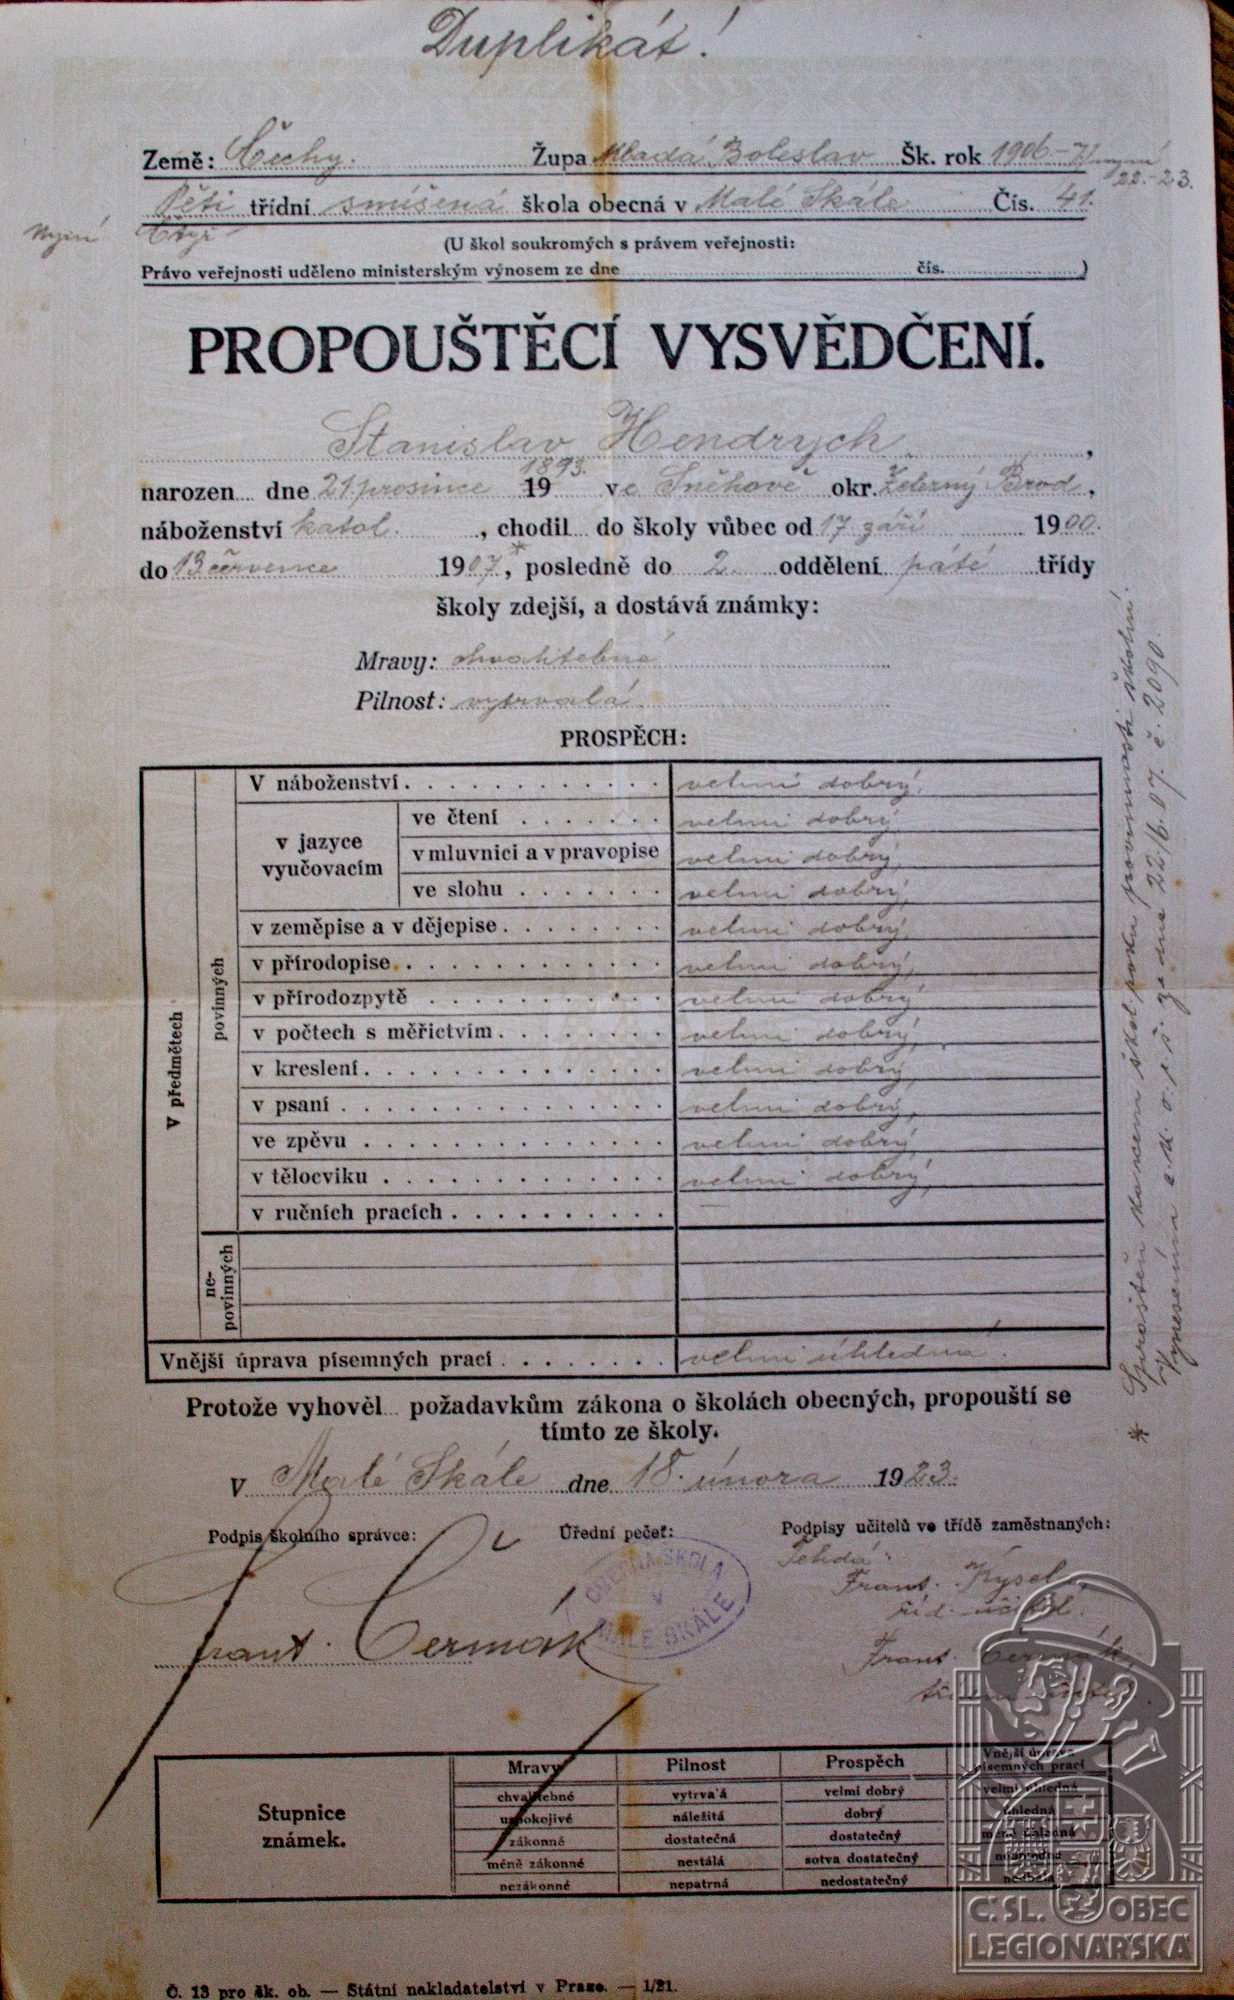 Duplikát!
Země: Čechy. Župa Mladá Boleslav Šk. rok 1906-7/nyní
22.-23.
Pěti třídní smíšená škola obecná v Malé Skále Čís. 41.
Nyní čtyř
(U škol soukromých s právem veřejnosti:
Právo veřejnosti uděleno ministerským výnosem ze dne čís. )
PROPOUŠTĚCÍ VYSVĚDČENÍ.
Stanislav Hendrych,
narozen dne 21 prosince 19 1893. ve Sněhově okr. Železný Brod,
náboženství katol. , chodil do školy vůbec od 17 září 1900.
do 13 července 1907*, posledně do 2. oddělení páté třídy
školy zdejší, a dostává známky:
Mravy: chvalitebné
Pilnost: vytrvalá.
PROSPĚCH:
V předmětech
povinných
V náboženství velmi dobrý,
v jazyce vyučovacím
ve čtení velmi dobrý,
v mluvnici a v pravopise velmi dobrý,
ve slohu velmi dobrý,
v zeměpise a v dějepise velmi dobrý,
v přírodopise velmi dobrý,
v přírodozpytě velmi dobrý
v počtech s měřictvím velmi dobrý,
v kreslení velmi dobrý,
v psaní velmi dobrý,
ve zpěvu velmi dobrý,
v tělocviku velmi dobrý,
v ručních pracích —
ne-
povinných
Vnější úprava písemných prací velmi úhledná.
Protože vyhověl požadavkům zákona o školách obecných, propouští se
tímto ze školy.
V Malé Skále dne 18. února 1923.
Podpis školního správce: Úřední pečeť: Podpisy učitelů ve třídě zaměstnaných:
Frant. Čermák
OBECNÁ ŠKOLA
V
MALÉ SKÁLE
Tehdá:
Frant. Kysela,
říd. učitel.
Frant. Čermák,
třídní učitel.
* Sproštěn koncem škol. roku povinnosti školní.
Vynesením c. k. o. š. r. ze dne 22/6. 07. č. 2090.
Stupnice
známek.
Mravy Pilnost Prospěch Vnější úprava
písemných prací
chvalitebné vytrvalá velmi dobrý velmi úhledná
uspokojivé náležitá dobrý úhledná
zákonné dostatečná dostatečný méně úhledná
méně zákonné nestálá sotva dostatečný
nezákonné nepatrná nedostatečný
Č. 13 pro šk. ob. — Státní nakladatelství v Praze. — 1/21.
Č. SL. OBEC
LEGIONÁŘSKÁ